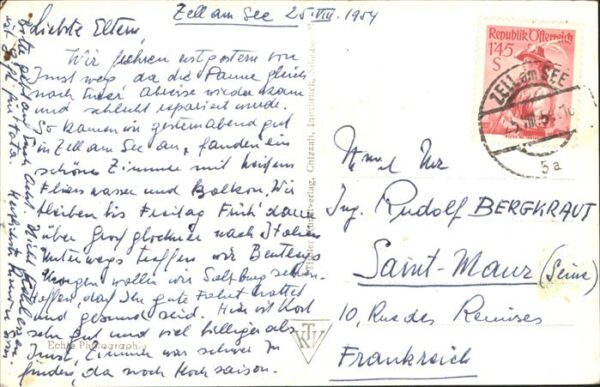 Zell am See 25. VIII. 1954
Liebste Eltern,
Wir fuhren erst gestern von
Innsbr. weg da die Panne gleich
nach Eurer Abreise wieder kam
und schlecht repariert wurde.
So kamen wir gestern abend gut
in Zell am See an, fanden ein
schönes Zimmer mit heißem
Fliesswasser und Balkon. Wir
bleiben bis Freitag Früh dann
über Grossglockner nach Italien
Unterwegs treffen wir
Morgen wollen wir Salzburg sehen.
Hoffen, dass Ihr gute Fahrt hattet
und gesund seid. Hier ist Kost
sehr gut und viel billiger als
Innsbr. Zimmer war schwer zu
finden, da noch Hochsaison.
Bitte gebt auf Euch Acht. Nicht
ist für Tata
Herzlichste
Echte Photographie
KTV
Republik Österreich
1'45
S
ZELL am SEE
VIII. 54
5a
Ing. Rudolf BERGKRAUT
Saint-Maur (Seine)
10, Rue des Remises
Frankreich